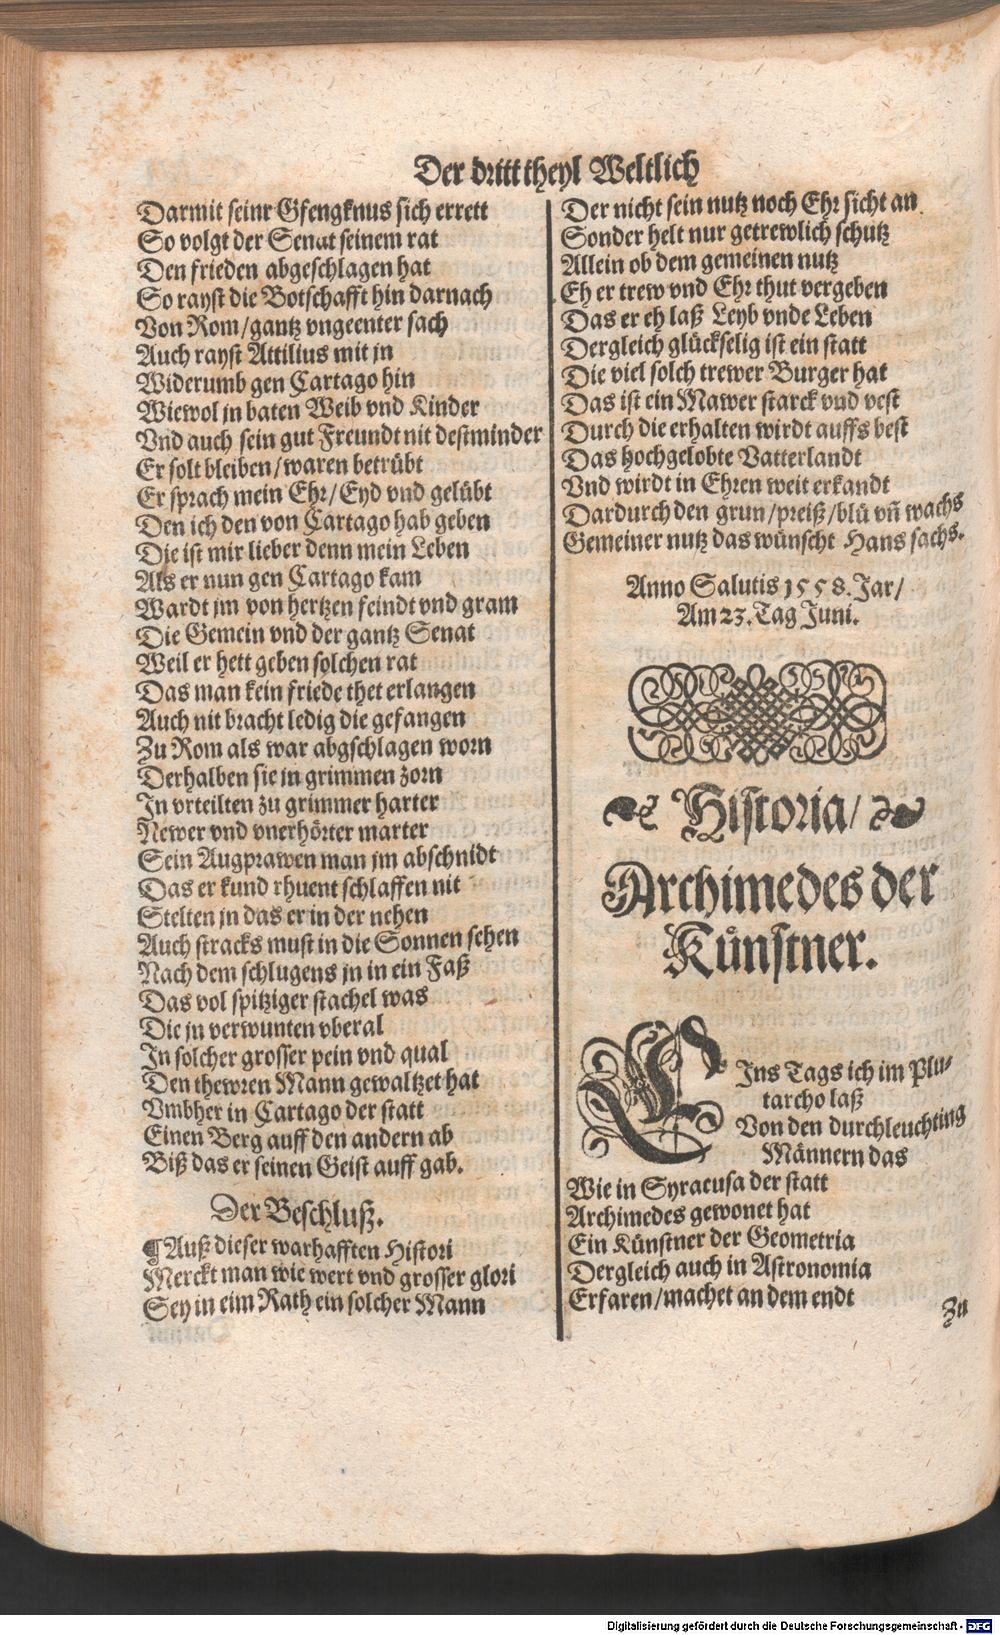 Der dritt theyl Weltlich
Darmit seinr Gfengknus sich errett
So volgt der Senat seinem rat
Den frieden abgeschlagen hat
So rayst die Botschafft hin darnach
Von Rom/gantz vngeenter sach
Auch rayst Attilius mit jn
Widerumb gen Cartago hin
Wiewol jn baten Weib vnd Kinder
Vnd auch sein gut Freundt nit destminder
Er solt bleiben/waren betrübt
Er sprach mein Ehr/Eyd vnd gelübt
Den ich den von Cartago hab geben
Die ist mir lieber denn mein Leben
Als er nun gen Cartago kam
Wardt jm von hertzen feindt vnd gram
Die Gemein vnd der gantz Senat
Weil er hett geben solchen rat
Das man kein friede thet erlangen
Auch nit bracht ledig die gefangen
Zu Rom als war abgschlagen worn
Derhalben sie in grimmen zorn
In vrteilten zu grimmer harter
Newer vnd vnerhörter marter
Sein Augprawen man jm abschnidt
Das er kund rhuent schlaffen nit
Stelten jn das er in der nehen
Auch stracks must in die Sonnen sehen
Nach dem schlugens jn in ein Faß
Das vol spitziger stachel was
Die jn verwunten vberal
In solcher grosser pein vnd qual
Den thewren Mann gewaltzet hat
Vmbher in Cartago der statt
Einen Berg auff den andern ab
Biß das er seinen Geist auff gab.
Der Beschluß.
¶Auß dieser warhafften Histori
Merckt man wie wert vnd grosser glori
Sey in eim Rath ein solcher Mann
Der nicht sein nutz noch Ehr sicht an
Sonder helt nur getrewlich schutz
Allein ob dem gemeinen nutz
Eh er trew vnd Ehr thut vergeben
Das er eh laß Leyb vnde Leben
Dergleich glückselig ist ein statt
Die viel solch trewer Burger hat
Das ist ein Mawer starck vnd vest
Durch die erhalten wirdt auffs best
Das hochgelobte Vatterlandt
Vnd wirdt in Ehren weit erkandt
Dardurch den grun/preiß/blü vñ wachs
Gemeiner nutz das wünscht Hans sachs.
Anno Salutis 1558. Jar/
Am 23. Tag Juni.
Historia/
Archimedes der
Künstner.
EIns Tags ich im Plu-
tarcho laß
Von den durchleuchting
Männern das
Wie in Syracusa der statt
Archimedes gewonet hat
Ein Künstner der Geometria
Dergleich auch in Astronomia
Erfaren/machet an dem endt
Zu
Digitalisierung gefördert durch die Deutsche Forschungsgemeinschaft - DFG